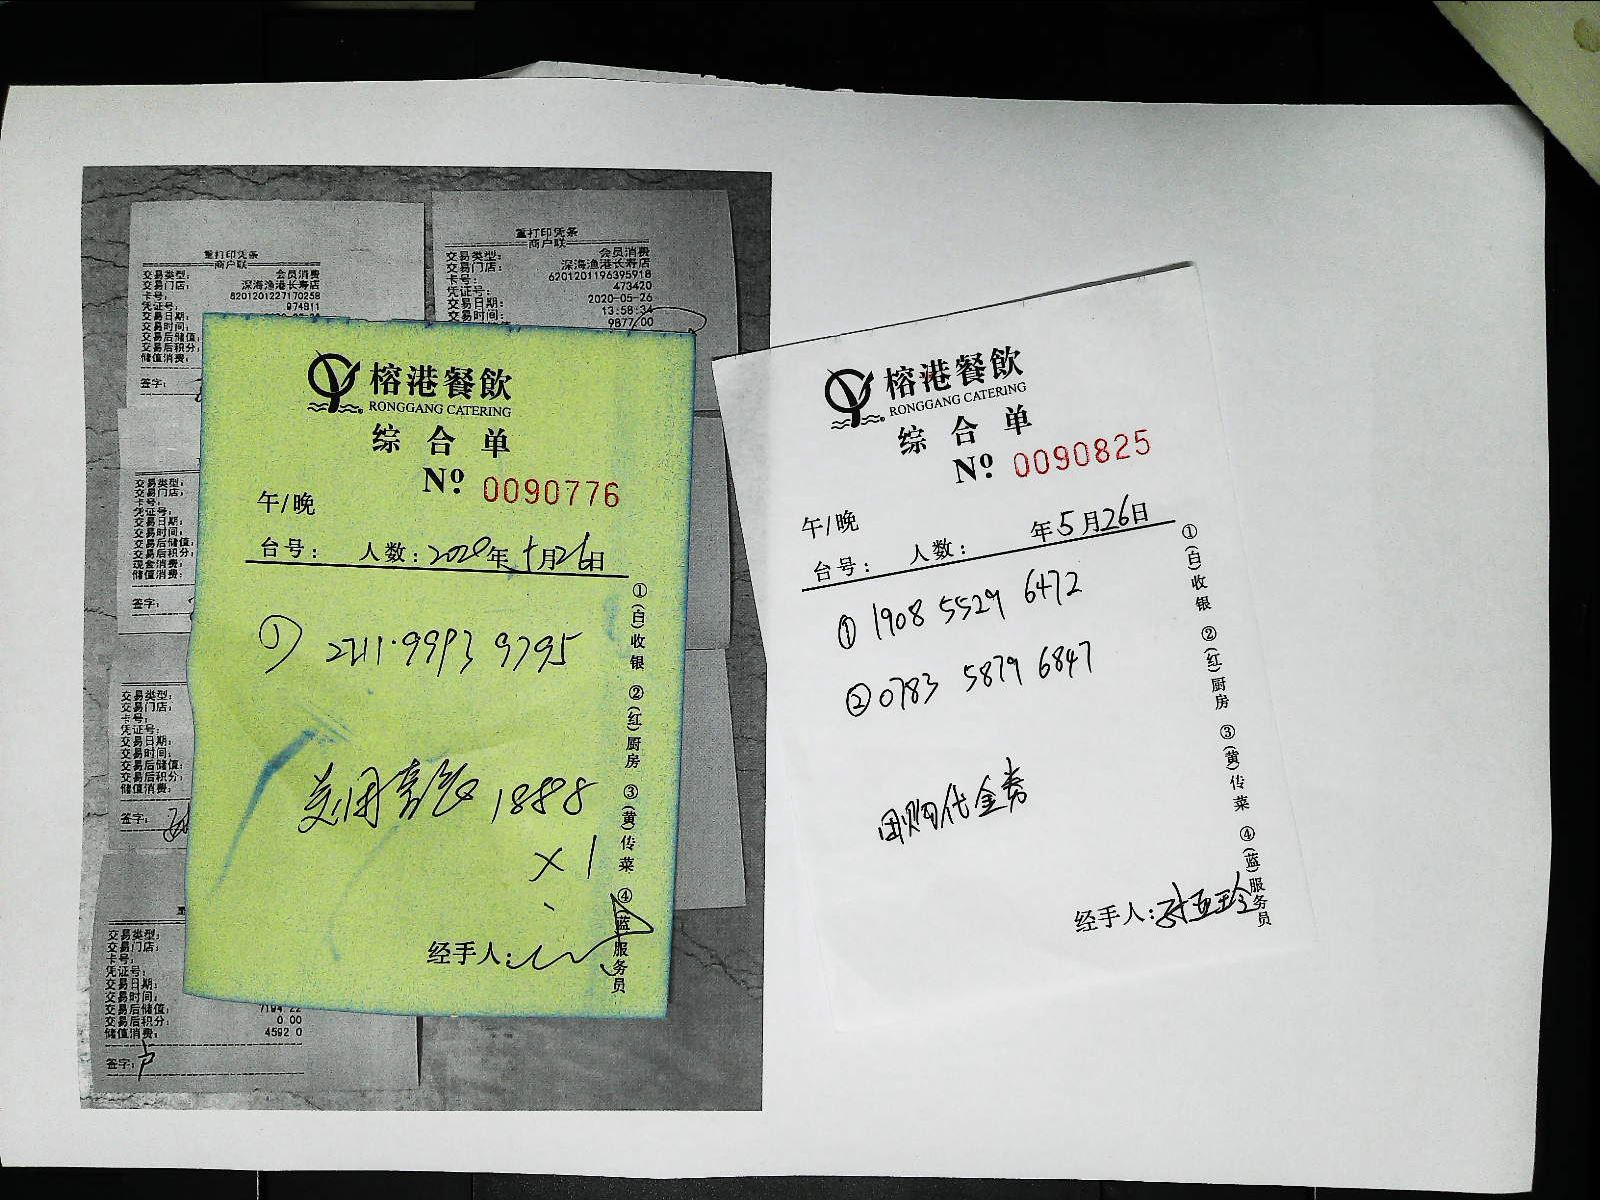 重打印凭条
商户联
交易类型: 会员消费
交易门店: 深海渔港长寿店
卡号: 6201201227170258
凭证号: 974811
交易日期:
交易时间:
交易后储值:
交易后积分:
储值消费:
签字:
重打印凭条
商户联
交易类型: 会员消费
交易门店: 深海渔港长寿店
卡号: 6201201196395918
凭证号: 473420
交易日期: 2020-05-26
交易时间: 13:58:34
9877.00
交易类型:
交易门店:
卡号:
凭证号:
交易日期:
交易时间:
交易后储值:
交易后积分:
现金消费:
储值消费:
签字:
交易类型:
交易门店:
卡号:
凭证号:
交易日期:
交易时间:
交易后储值:
交易后积分:
储值消费:
签字:
交易类型:
交易门店:
卡号:
凭证号:
交易日期:
交易时间:
交易后储值: 7194.22
交易后积分: 0.00
储值消费: 4592.0
签字: 卢
榕港餐飲
RONGGANG CATERING
综合单
Nº 0090776
午/晚
台号: 人数: 2020年5月26日
① 2211.9993 9795
美团套餐 1888
×1
经手人:
①(白)收银 ②(红)厨房 ③(黄)传菜 ④(蓝)服务员
榕港餐飲
RONGGANG CATERING
综合单
Nº 0090825
午/晚
台号: 人数: 年5月26日
① 1908 5529 6472
② 0783 5879 6847
团购代金券
经手人:
①(白)收银 ②(红)厨房 ③(黄)传菜 ④(蓝)服务员